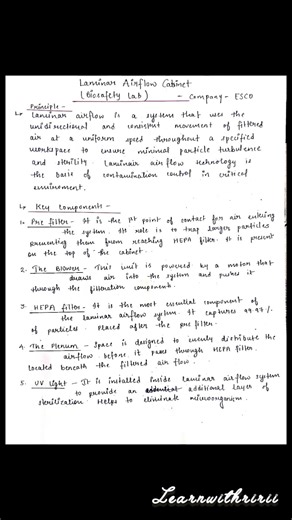 Laminar Airflow Cabinet
(Biosafety Lab) - Company - ESCO
Principle -
Laminar airflow is a system that uses the
unidirectional and consistent movement of filtered
air at a uniform speed throughout a specified
workspace to ensure minimal particle turbulence
and sterility. Laminar air flow technology is
the basis of contamination control in critical
environment.
Key Components -
1. Pre filter - It is the 1st point of contact for air entering
the system. Its role is to trap larger particles
preventing them from reaching HEPA filter. It is present
on the top of the cabinet.
2. The Blower - This unit is powered by a motor that
draws air into the system and pushes it
through the filteration components.
3. HEPA filter - It is the most essential component of
the laminar airflow system. It captures 99.97%
of particles. Placed after the pre filter.
4. The Plenum - Space is designed to evenly distribute the
airflow before it pass through HEPA filter.
Located beneath the filtered air flow.
5. UV light - It is installed inside laminar airflow system
to provide an additional layer of
sterilisation. Helps to eliminate microorganism.
Learnwithririi